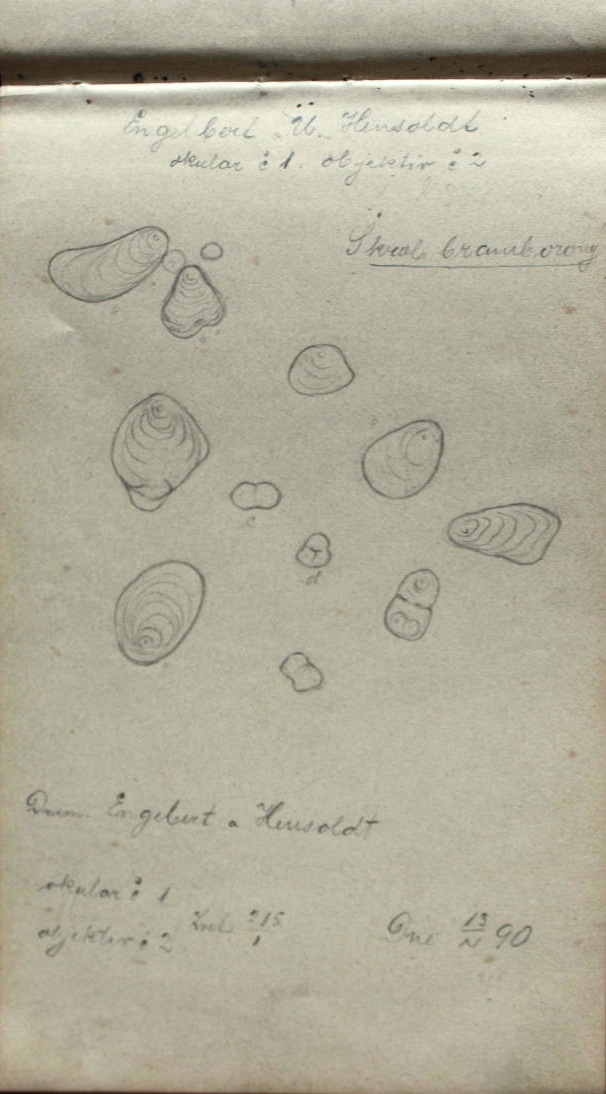 Engelbert & Hensoldt
okular č 1. objektiv č 2
Škrob bramborový
c
d
Engelbert a Hensoldt
okular č 1
objektiv č 2 Zvět. 215/1 Dne 13/IV 90